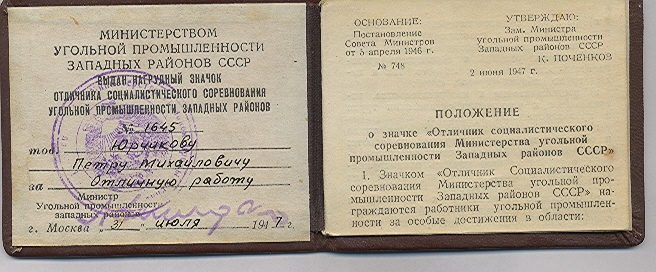 МИНИСТЕРСТВОМ
УГОЛЬНОЙ ПРОМЫШЛЕННОСТИ
ЗАПАДНЫХ РАЙОНОВ СССР
ВЫДАН НАГРУДНЫЙ ЗНАЧОК
ОТЛИЧНИКА СОЦИАЛИСТИЧЕСКОГО СОРЕВНОВАНИЯ
УГОЛЬНОЙ ПРОМЫШЛЕННОСТИ ЗАПАДНЫХ РАЙОНОВ
№ 1645
тов. Юрчикову
Петру Михайловичу
за Отличную работу
Министр
Угольной промышленности
западных районов
г. Москва „31" июля 1947 г.
ОСНОВАНИЕ:
Постановление
Совета Министров
от 5 апреля 1946 г.
№ 748
УТВЕРЖДАЮ:
Зам. Министра
угольной промышленности
Западных районов СССР
К. ПОЧЕНКОВ
2 июня 1947 г.
ПОЛОЖЕНИЕ
о значке «Отличник социалистического
соревнования Министерства угольной
промышленности Западных районов СССР»
1. Значком «Отличник Социалистического
соревнования Министерства угольной про-
мышленности Западных районов СССР» на-
граждаются работники угольной промышлен-
ности за особые достижения в области: